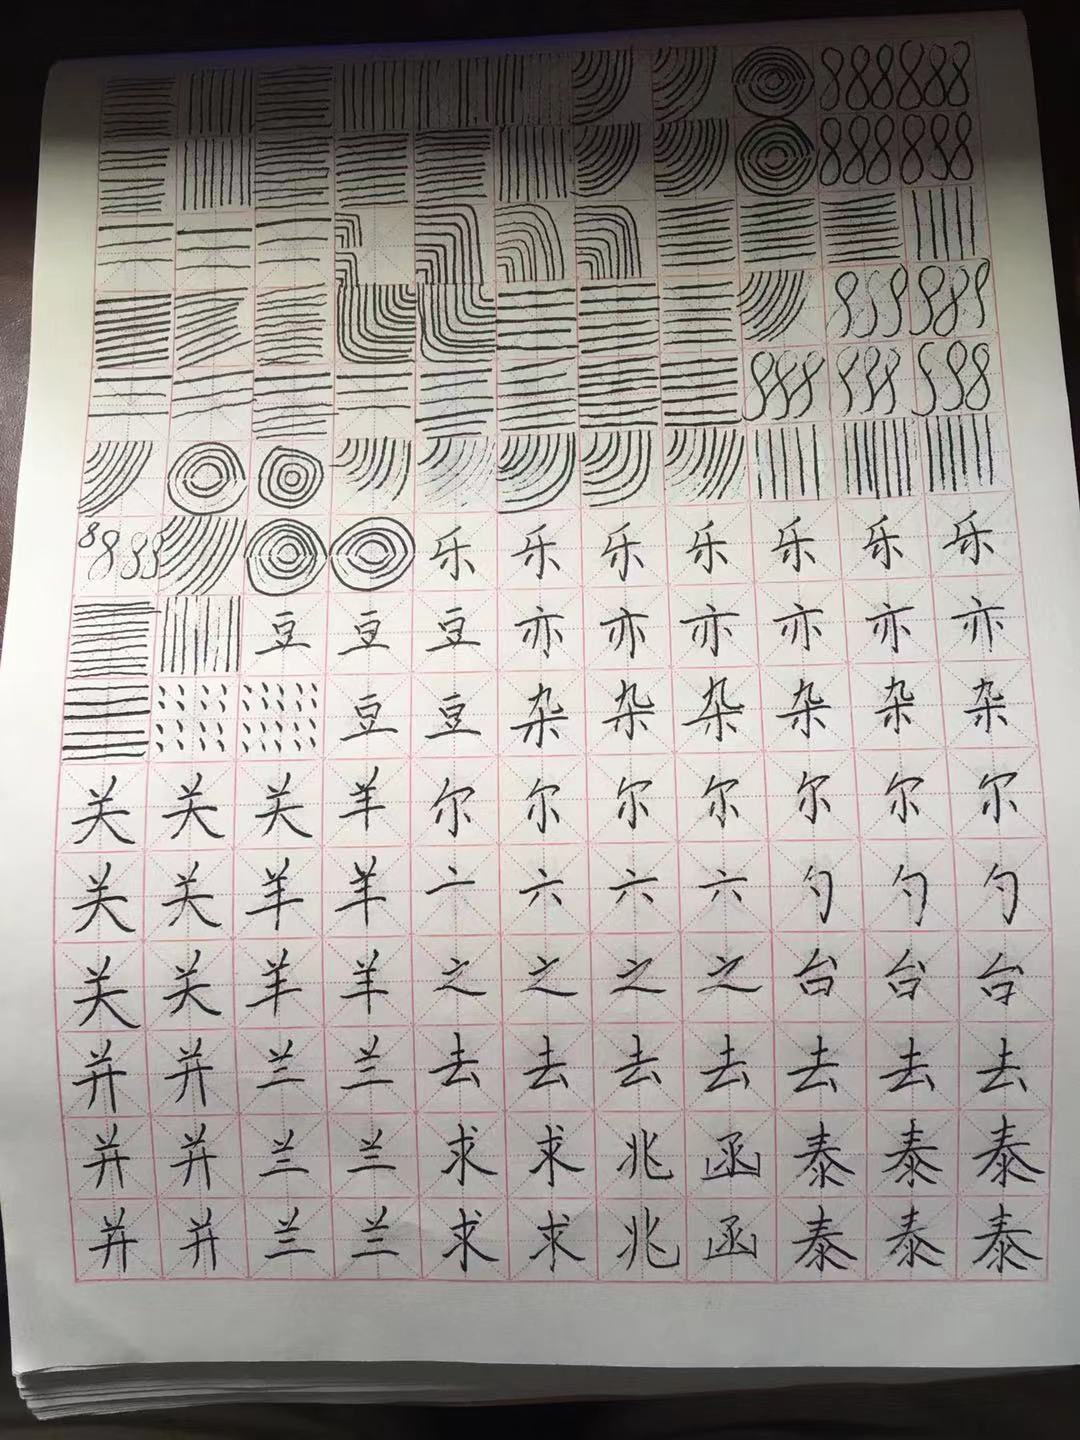 乐 乐 乐 乐 乐 乐 乐
豆 豆 豆 亦 亦 亦 亦 亦 亦
豆 豆 杂 杂 杂 杂 杂 杂
关 关 关 羊 尔 尔 尔 尔 尔 尔 尔
关 关 羊 羊 亠 六 六 六 勺 勺 勺
关 关 羊 羊 之 之 之 之 台 台 台
并 并 兰 兰 去 去 去 去 去 去 去
并 并 兰 兰 求 求 兆 函 泰 泰 泰
并 并 兰 兰 求 求 兆 函 泰 泰 泰